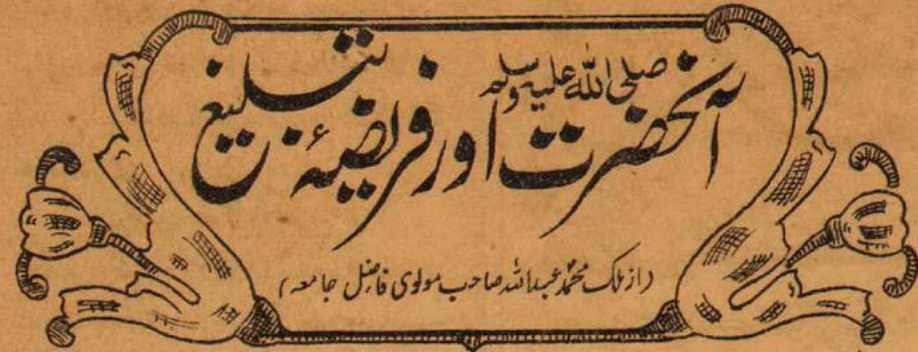 آنحضرت صلی اللہ علیہ وسلم اور فریضۂ تبلیغ
(از ملک محمد عبد اللہ صاحب مولوی فاضل جامعہ)